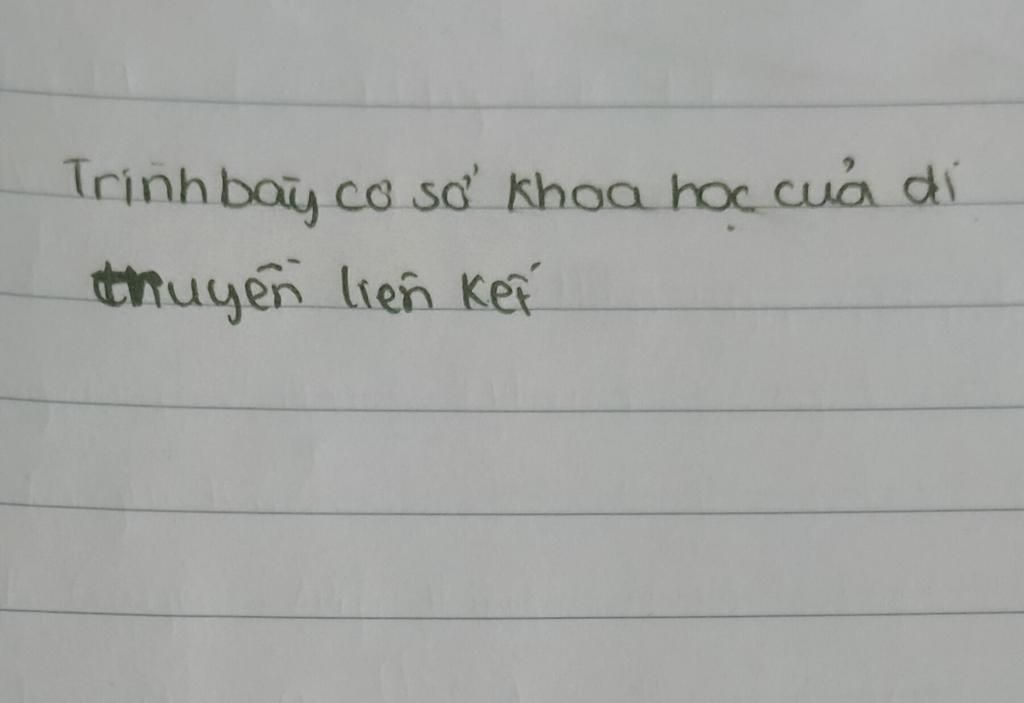 Trình bày cơ sở khoa học của di
thuyền liên kết